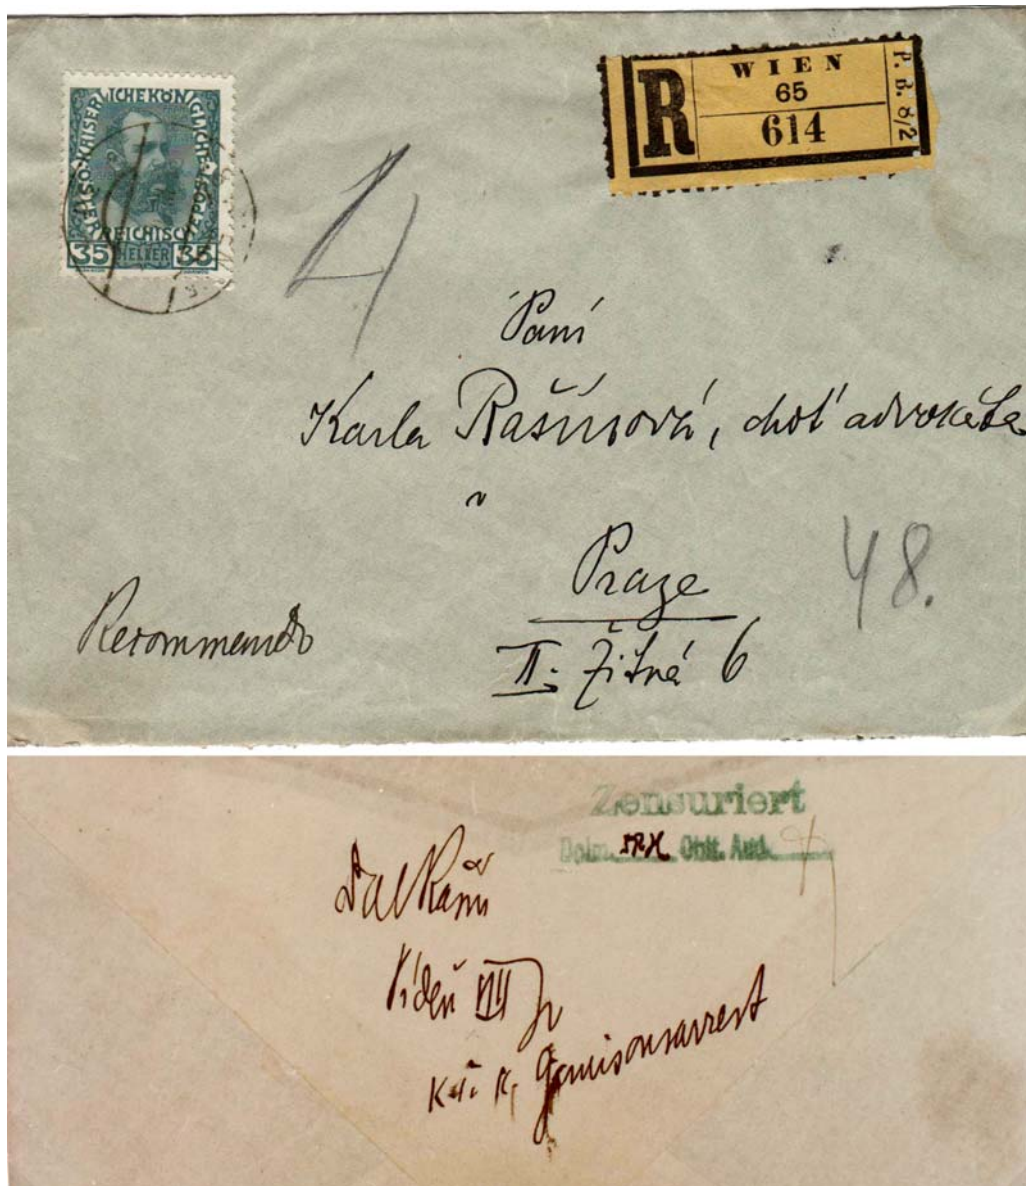 KAISERLICHE KÖNIGLICHE
ÖSTERREICHISCHE POST
35 HELLER 35
R
WIEN
65
614
P. B. 8/2
4
Paní
Karla Rašínová, choť advokáta
v
Praze
II: Žitná 6
Recommando
48.
Zensuriert
Dolm. Oblt. Aud.
Rašín
Vídeň VIII
k. u. k. Garnisonsarrest